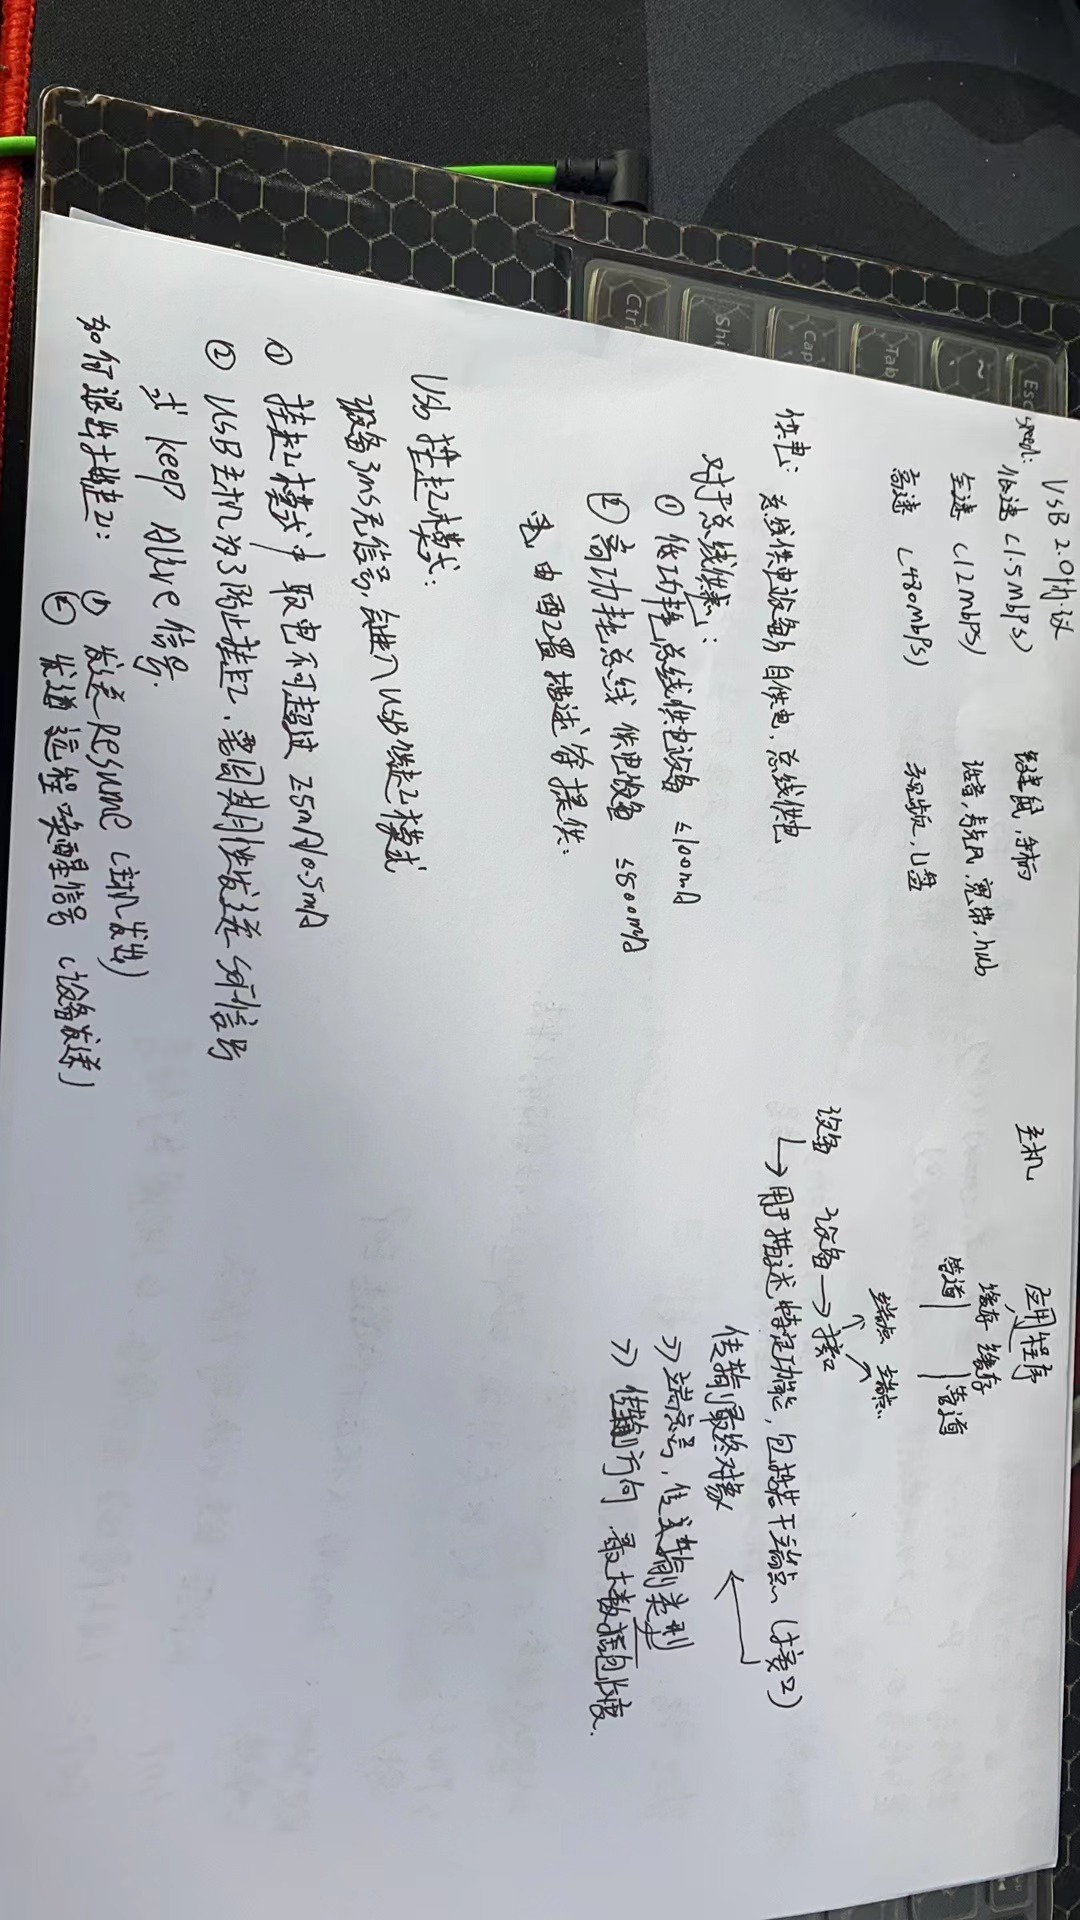 USB 2.0协议
speed:
低速 (1.5mbps) 键鼠,手柄
全速 (12mbps) 语音,麦克风,宽带,hub
高速 (480mbps) 视频,U盘
供电:
总线供电设备分 自供电、总线供电
对于总线供电:
① 低功耗总线供电设备 ≤100mA
② 高功耗总线供电设备 ≤500mA
电由配置描述符提供:
Usb 挂起模式:
设备3ms无信号,会进入USB挂起模式
① 挂起模式中 取电不可超过 2.5mA/0.5mA
② USB主机为了防止挂起,需周期性发送 SOF信号
或 keep Alive 信号.
如何退出挂起: ① 发送Resume (主机发出)
② 发送远程唤醒信号 (设备发送)
主机 应用程序
缓存 缓存
管道 管道
端点 端点
设备 设备→接口
用于描述特定功能,包括若干端点 (接口)
传输最终对象
>> 端点号,传输类型
>> 传输方向 最大数据包长度.
Esc
~
Tab
Cap
Shi
Ctrl